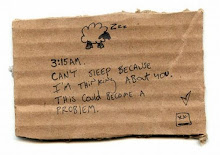 3:15AM.
CAN'T SLEEP BECAUSE
I'M THINKING ABOUT YOU.
THIS COULD BECOME A
PROBLEM.